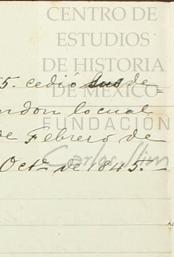 CENTRO DE
ESTUDIOS
DE HISTORIA
DE MÉXICO
FUNDACIÓN
Carlos Slim
5. cedió sus de-
ndon lo cual
de Febrero de
Octe. de 1845.